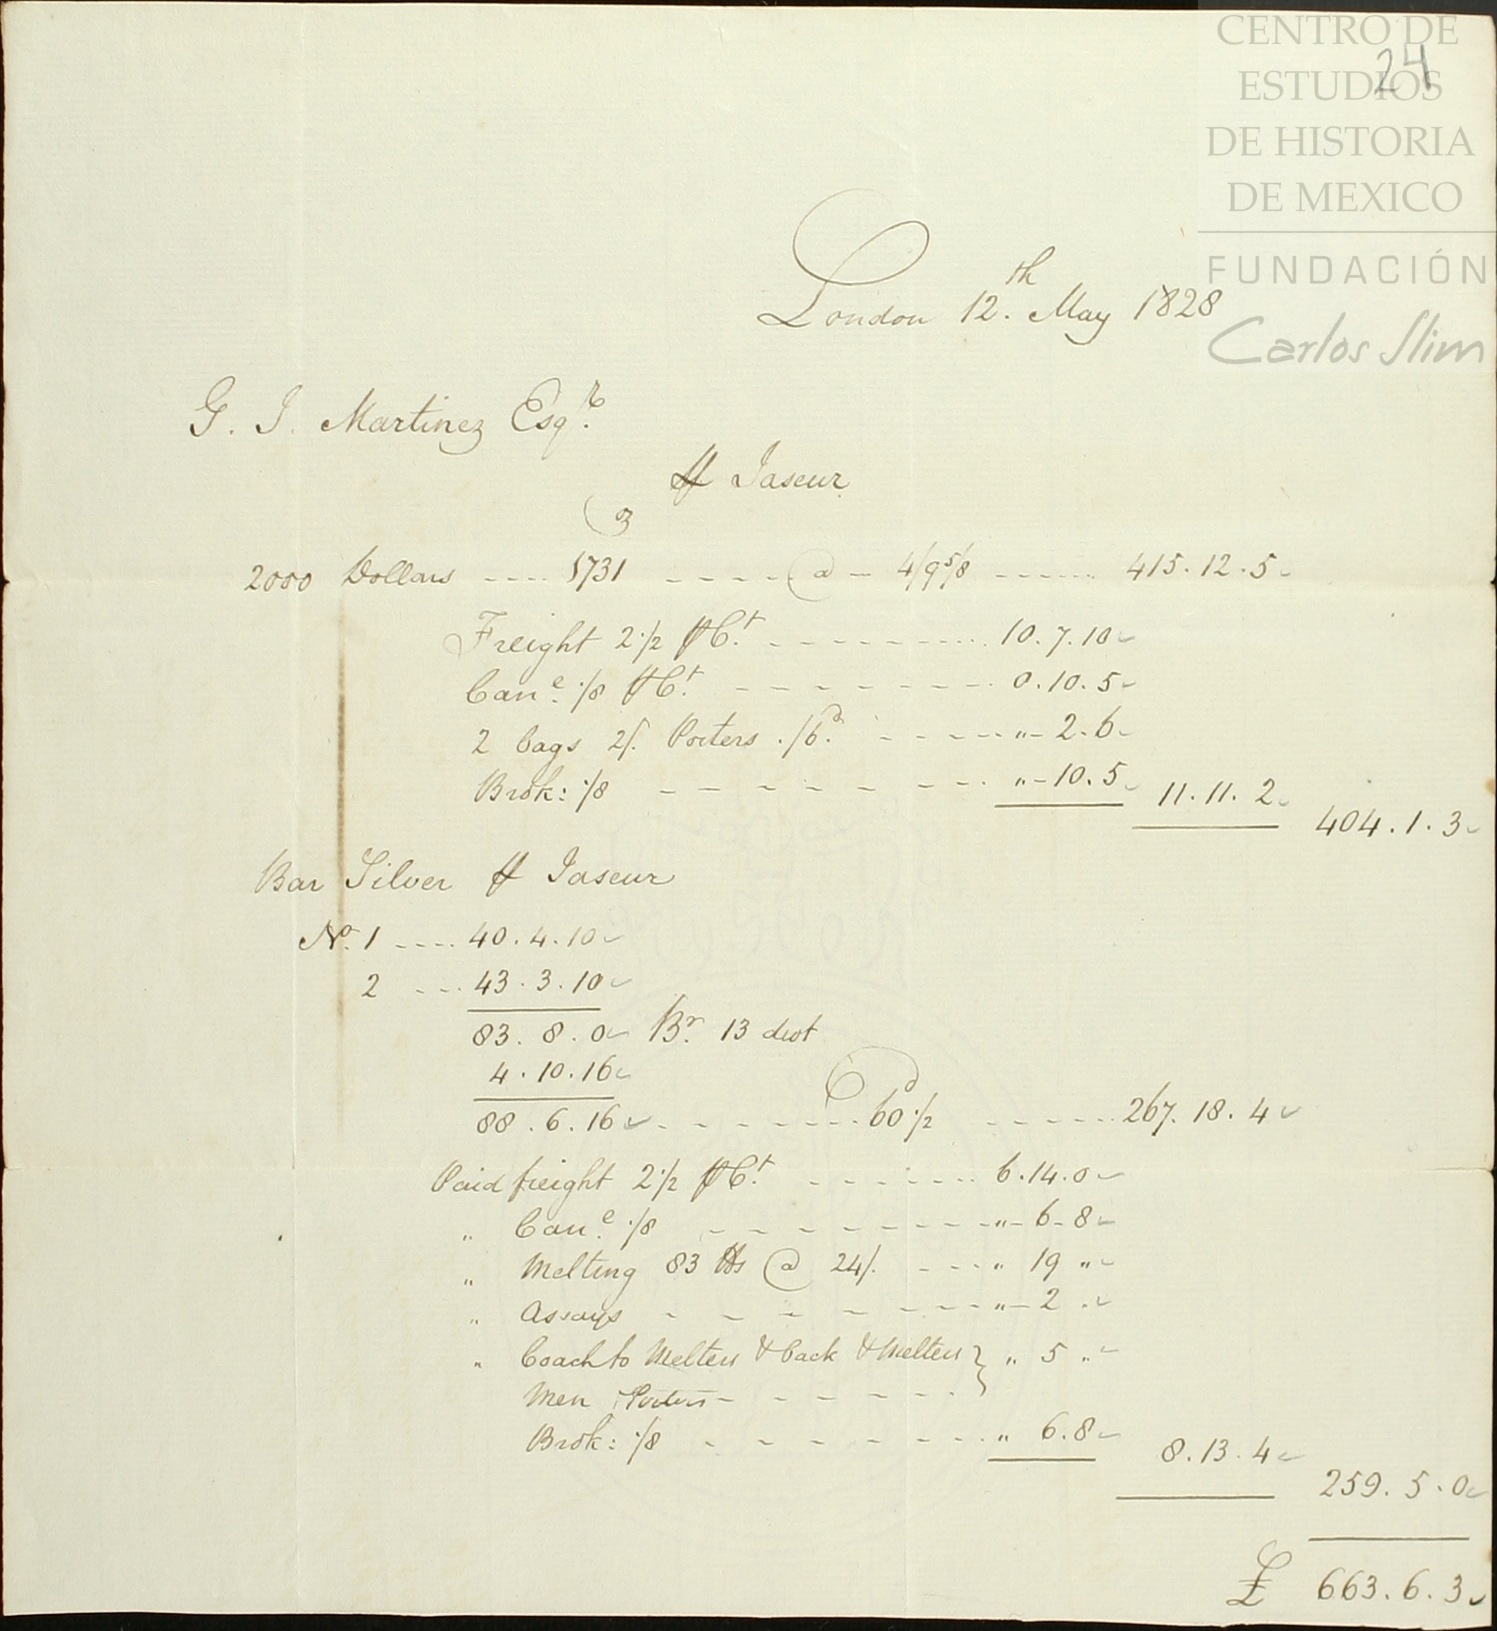 CENTRO DE
ESTUDIOS
DE HISTORIA
DE MEXICO
FUNDACIÓN
Carlos Slim
24
London 12.th May 1828
G. J. Martinez Esqr.
⅌ Jaseur
oz
2000 Dollars ---- 1731 ----- @ -- 4/9 5/8 ------ 415.12.5
Freight 2 1/2 ⅌ Ct. --------- 10.7.10
Can.e 1/8 ⅌ Ct. -------- 0.10.5
2 bags 2/. Porters ./6.d ----- " - 2.6
Brok: 1/8 -------- " - 10.5
11.11.2
404.1.3
Bar Silver ⅌ Jaseur
No. 1 ---- 40.4.10
2 --- 43.3.10
83.8.0 Br. 13 dwt
4.10.16
88.6.16 -------- @ 60 1/2 d ----- 267.18.4
Paid freight 2 1/2 ⅌ Ct. ------ 6.14.0
" Can.e 1/8 --------- " - 6-8
" Melting 83 lbs @ 24/. --- " 19 "
" Assays -------- " - 2 "
" Coach to Melters & back & Melters } " 5 "
Men Porters ------
Brok: 1/8 ------- " 6.8
8.13.4
259.5.0
£ 663.6.3